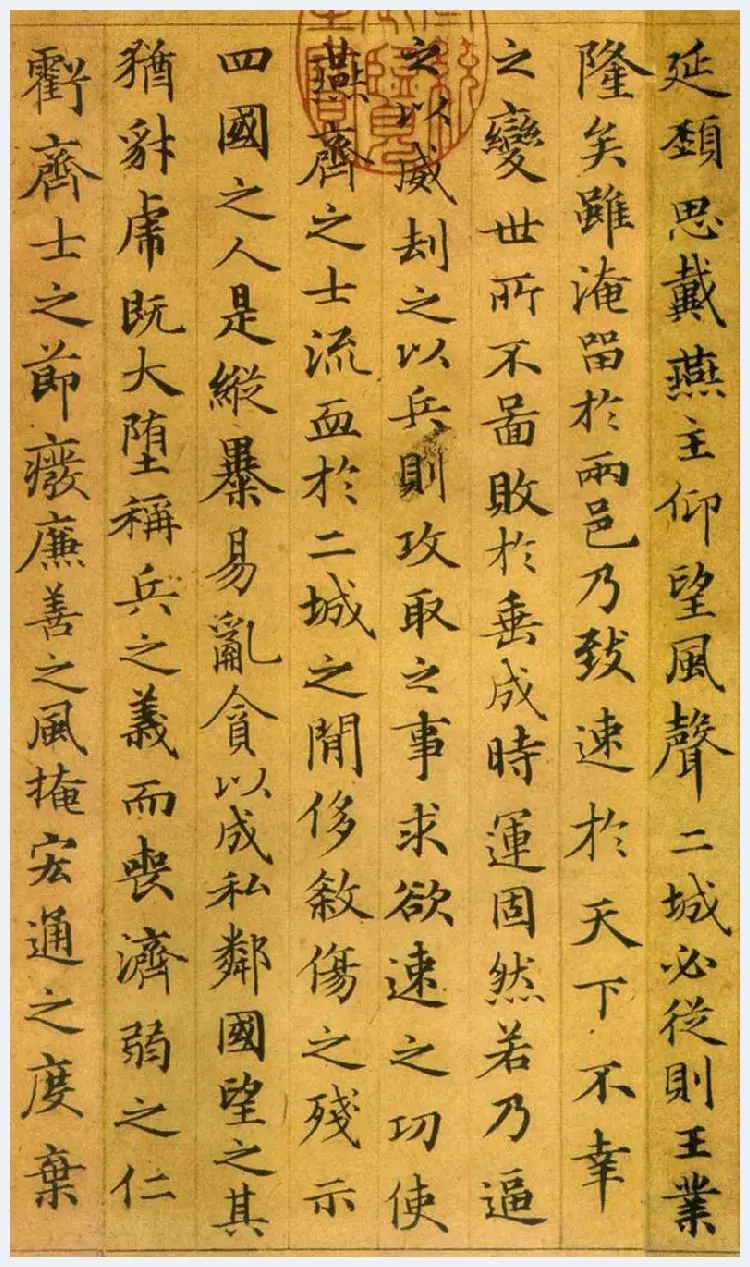 延頚思戴燕主仰望風聲二城必従則王業
隆矣雖淹留於兩邑乃致速於天下不幸
之變世所不啚敗於垂成時運固然若乃逼
之以威刦之以兵則攻取之事求欲速之功使
燕齊之士流血於二城之閒侈敘傷之殘示
四國之人是縱暴易亂貪以成私鄰國望之其
猶豺虎既大堕稱兵之義而喪濟弱之仁
虧齊士之節癈廉善之風掩宏通之度棄